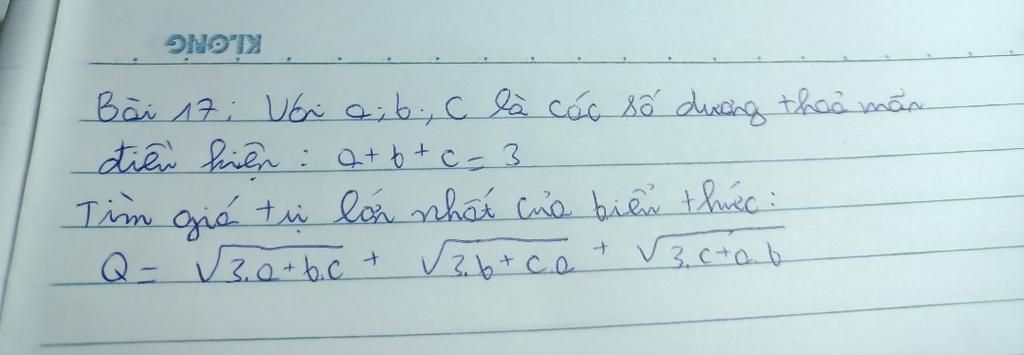 KLONG
Bài 17: Với a; b; c là các số dương thoả mãn
điều kiện: a + b + c = 3
Tìm giá trị lớn nhất của biểu thức:
Q = √3.a+b.c + √3.b+c.a + √3.c+a.b